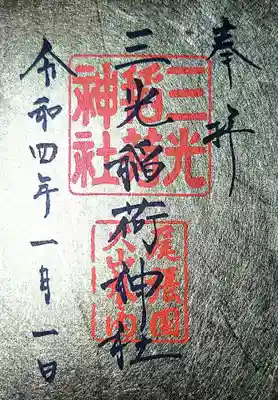 奉拝
三光稲荷神社
令和四年一月一日
三光稲荷神社
尾張国犬山城内